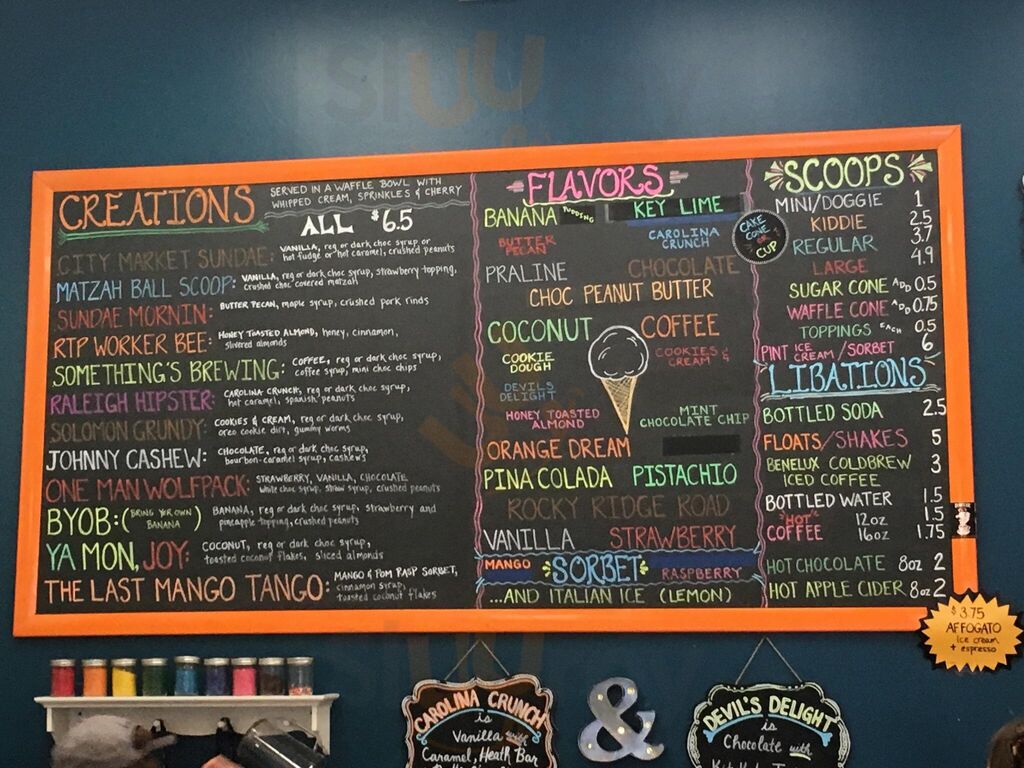 CREATIONS
SERVED IN A WAFFLE BOWL WITH
WHIPPED CREAM, SPRINKLES & CHERRY
ALL $6.5
CITY MARKET SUNDAE: VANILLA, reg or dark choc syrup or
hot fudge or hot caramel, crushed peanuts
MATZAH BALL SCOOP: VANILLA, reg or dark choc syrup, strawberry topping,
crushed choc covered matzah
SUNDAE MORNIN: BUTTER PECAN, maple syrup, crushed pork rinds
RTP WORKER BEE: HONEY TOASTED ALMOND, honey, cinnamon,
slivered almonds
SOMETHING'S BREWING: COFFEE, reg or dark choc syrup,
coffee syrup, mini choc chips
RALEIGH HIPSTER: CAROLINA CRUNCH, reg or dark choc syrup,
hot caramel, spanish peanuts
SOLOMON GRUNDY: COOKIES & CREAM, reg or dark choc syrup,
oreo cookie dirt, gummy worms
JOHNNY CASHEW: CHOCOLATE, reg or dark choc syrup,
bourbon-caramel syrup, cashews
ONE MAN WOLFPACK: STRAWBERRY, VANILLA, CHOCOLATE
white choc syrup, straw syrup, crushed peanuts
BYOB: (BRING YER OWN
BANANA) BANANA, reg or dark choc syrup, strawberry and
pineapple topping, crushed peanuts
YA MON, JOY: COCONUT, reg or dark choc syrup,
toasted coconut flakes, sliced almonds
THE LAST MANGO TANGO: MANGO & POM RASP SORBET,
cinnamon syrup,
toasted coconut flakes
FLAVORS
BANANA PUDDING KEY LIME
BUTTER
PECAN
CAROLINA
CRUNCH
PRALINE CHOCOLATE
CHOC PEANUT BUTTER
COCONUT COFFEE
COOKIE
DOUGH
COOKIES &
CREAM
DEVILS
DELIGHT
HONEY TOASTED
ALMOND
MINT
CHOCOLATE CHIP
ORANGE DREAM
PINA COLADA PISTACHIO
ROCKY RIDGE ROAD
VANILLA STRAWBERRY
MANGO SORBET RASPBERRY
...AND ITALIAN ICE (LEMON)
CAKE
CONE
OR
CUP
SCOOPS
MINI/DOGGIE 1
KIDDIE 2.5
REGULAR 3.7
LARGE 4.9
SUGAR CONE ADD 0.5
WAFFLE CONE ADD 0.75
TOPPINGS EACH 0.5
PINT ICE
CREAM/SORBET 6
LIBATIONS
BOTTLED SODA 2.5
FLOATS/SHAKES 5
BENELUX COLDBREW
ICED COFFEE 3
BOTTLED WATER 1.5
"HOT"
COFFEE 12oz 1.5
16oz 1.75
HOT CHOCOLATE 8oz 2
HOT APPLE CIDER 8oz 2
$3.75
AFFOGATO
ice cream
+ espresso
CAROLINA CRUNCH
is
Vanilla with
Caramel, Heath Bar
&
DEVIL'S DELIGHT
is
Chocolate with